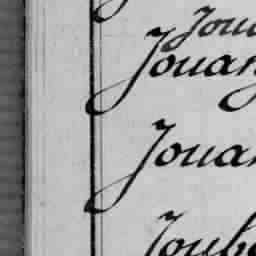 Jou
Jouan
Jouan
Joub